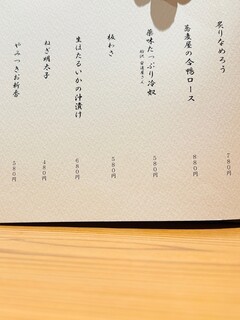 炙りなめろう
780円
蕎麦屋の合鴨ロース
880円
薬味たっぷり冷奴
580円
板わさ
580円
生ほたるいかの沖漬け
680円
ねぎ明太子
480円
やみつきお新香
580円